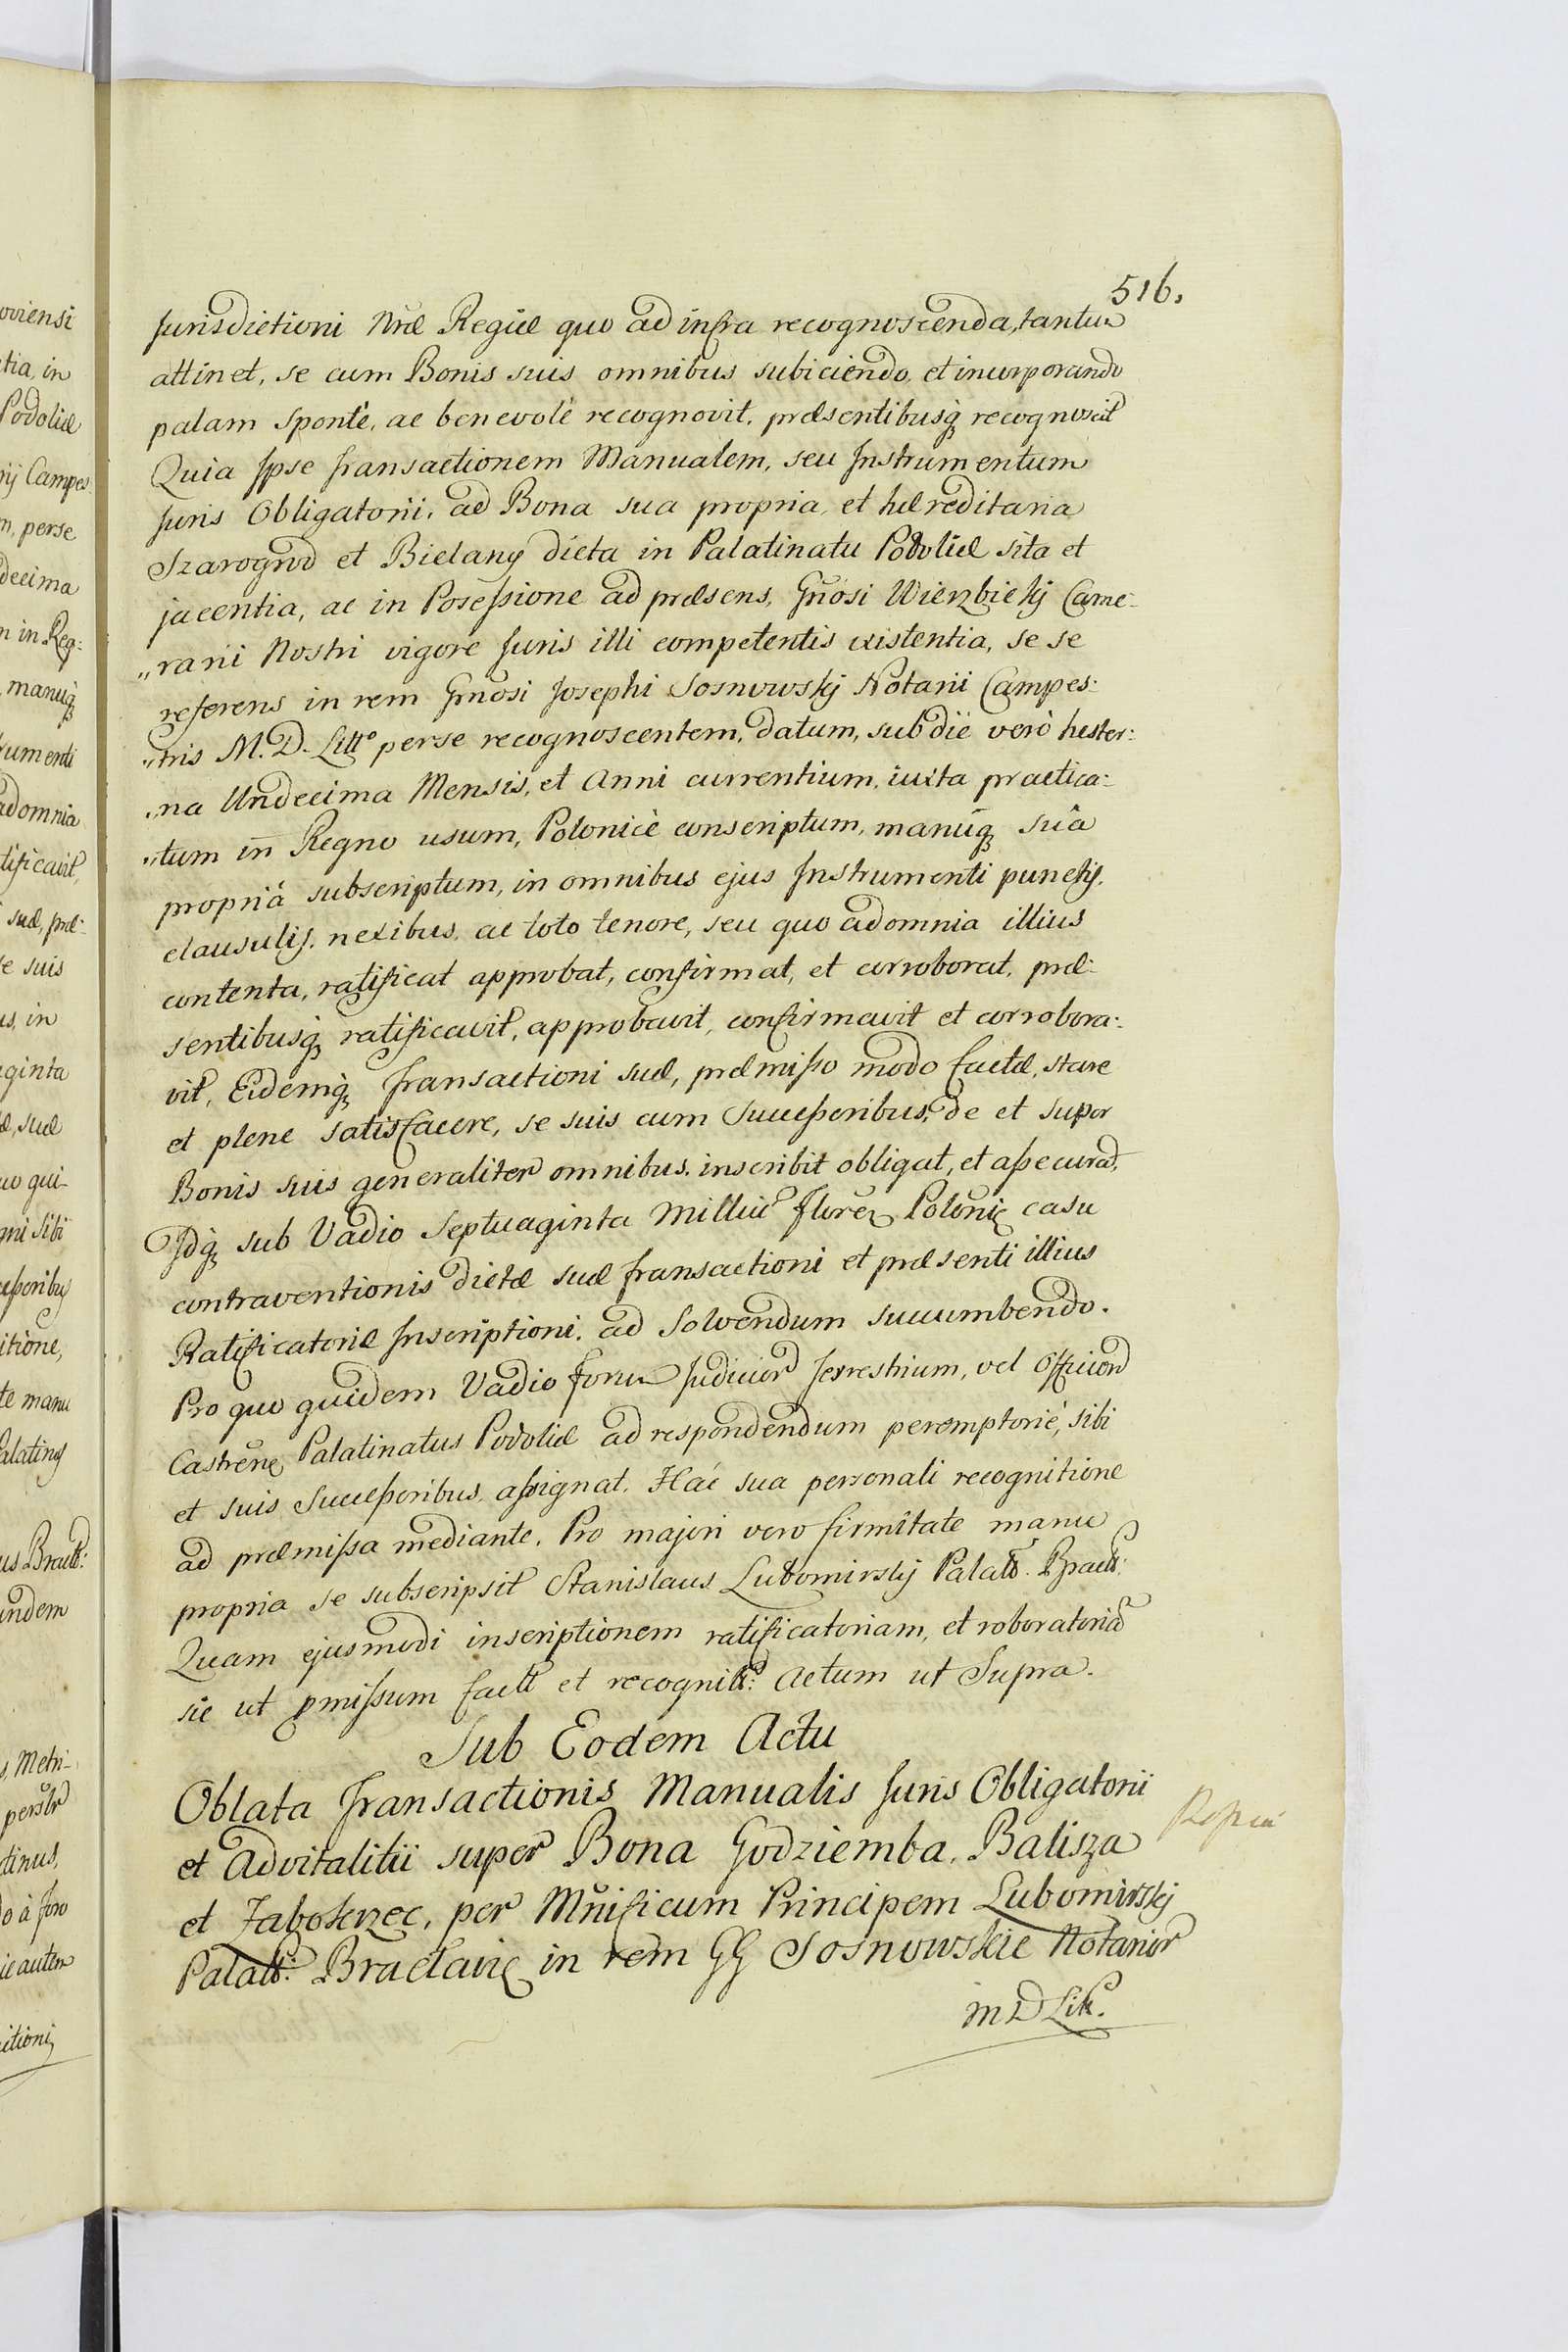 516.
Jurisdictioni Nræ Regiæ quo ad infra recognoscenda, tantum
attinet, se cum Bonis suis omnibus subiciendo, et incorporando
palam sponte, ac benevole recognovit, præsentibusq recognoscit
Quia Ipse Transactionem Manualem, seu Instrumentum
Juris Obligatorii, ad Bona sua propria, et hæreditaria
Szarogrod et Bielany dicta in Palatinatu Podoliæ sita et
jacentia, ac in Poseſsione ad præsens, Gnosi Wierzbickij Came-
„rarii Nostri vigore Juris illi competentis existentia, se se
referens in rem Gnosi Josephi Sosnowskij Notarii Campes:
„tris M. D. Litt° perse recognoscentem, datum, sub die verò hester:
„na Undecima Mensis, et Anni currentium, iuxta practica:
„tum in Regno usum, Polonicè conscriptum, manuq suâ
propriâ subscriptum, in omnibus ejus Instrumenti punctis,
clausulis, nexibus, ac toto tenore, seu quo ad omnia illius
contenta, ratificat approbat, confirmat, et corroborat, præ-
sentibusq ratificavit, approbavit, confirmavit et corrobora:
vit, Eidemq Transactioni suæ, præmiſso modo factæ, stare
et plene satisfacere, se suis cum Succeſsoribus, de et super
Bonis suis generaliter omnibus, inscribit obligat, et aſsecurat,
Idq sub Vadio Septuaginta Millium floren Polonic casu
contraventionis dictæ suæ Transactioni et præsenti illius
Ratificatoriæ Inscriptioni, ad Solvendum succumbendo.
Pro quo quidem Vadio forum Judicior Terrestrium, vel Officior
Castren Palatinatus Podoliæ ad respondendum peremptorie, sibi
et suis Succeſsoribus, aſsignat. Hac sua personali recognitione
ad præmiſsa mediante. Pro majori vero firmitate manu
propria se subscripsit Stanislaus Lubomirskij Palatt. Bractt:
Quam ejusmodi inscriptionem ratificatoriam, et roboratoria
sic ut pmiſsum factt et recognitt: Actum ut Supra.
Sub Eodem Actu
Oblata Transactionis Manualis Juris Obligatorii
et Advitalitii super Bona Godziemba, Balisza
et Zabokrzec, per Mnificum Principem Lubomirskij
Palatt: Braclavie in rem GG Sosnowskie Notarior
M D Litt.